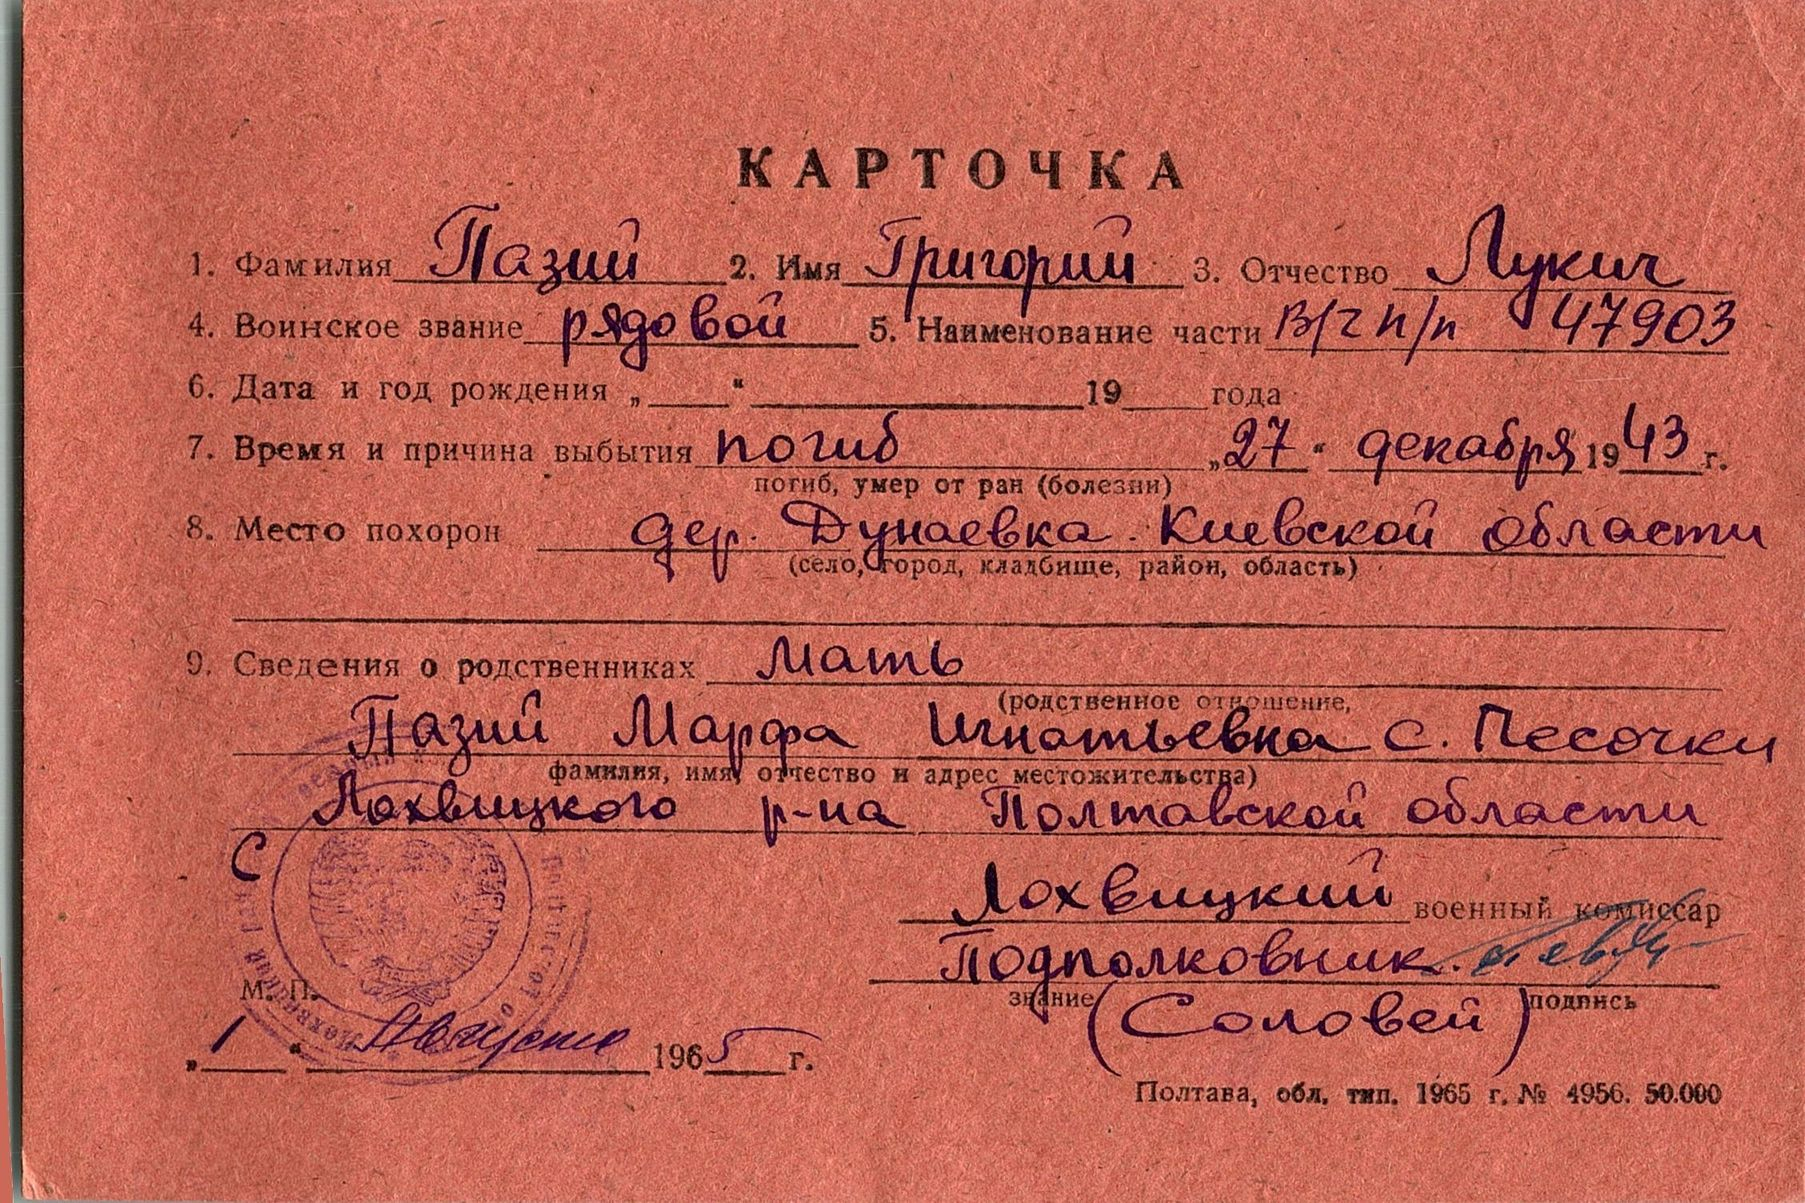 КАРТОЧКА
1. Фамилия Пазий 2. Имя Григорий 3. Отчество Лукич
4. Воинское звание рядовой 5. Наименование части в/ч п/п 47903
6. Дата и год рождения „ “ 19 года
7. Время и причина выбытия погиб „27“ декабря 1943 г.
погиб, умер от ран (болезни)
8. Место похорон дер. Дунаевка Киевской области
(село, город, кладбище, район, область)
9. Сведения о родственниках мать
(родственное отношение,
Пазий Марфа Игнатьевна с. Песочки
фамилия, имя, отчество и адрес местожительства)
Лохвицкого р-на Полтавской области
С
Лохвицкий военный комиссар
Подполковник.
М. П. звание подпись
(Соловей)
„1“ Августа 1965 г.
Полтава, обл. тип. 1965 г. № 4956. 50.000